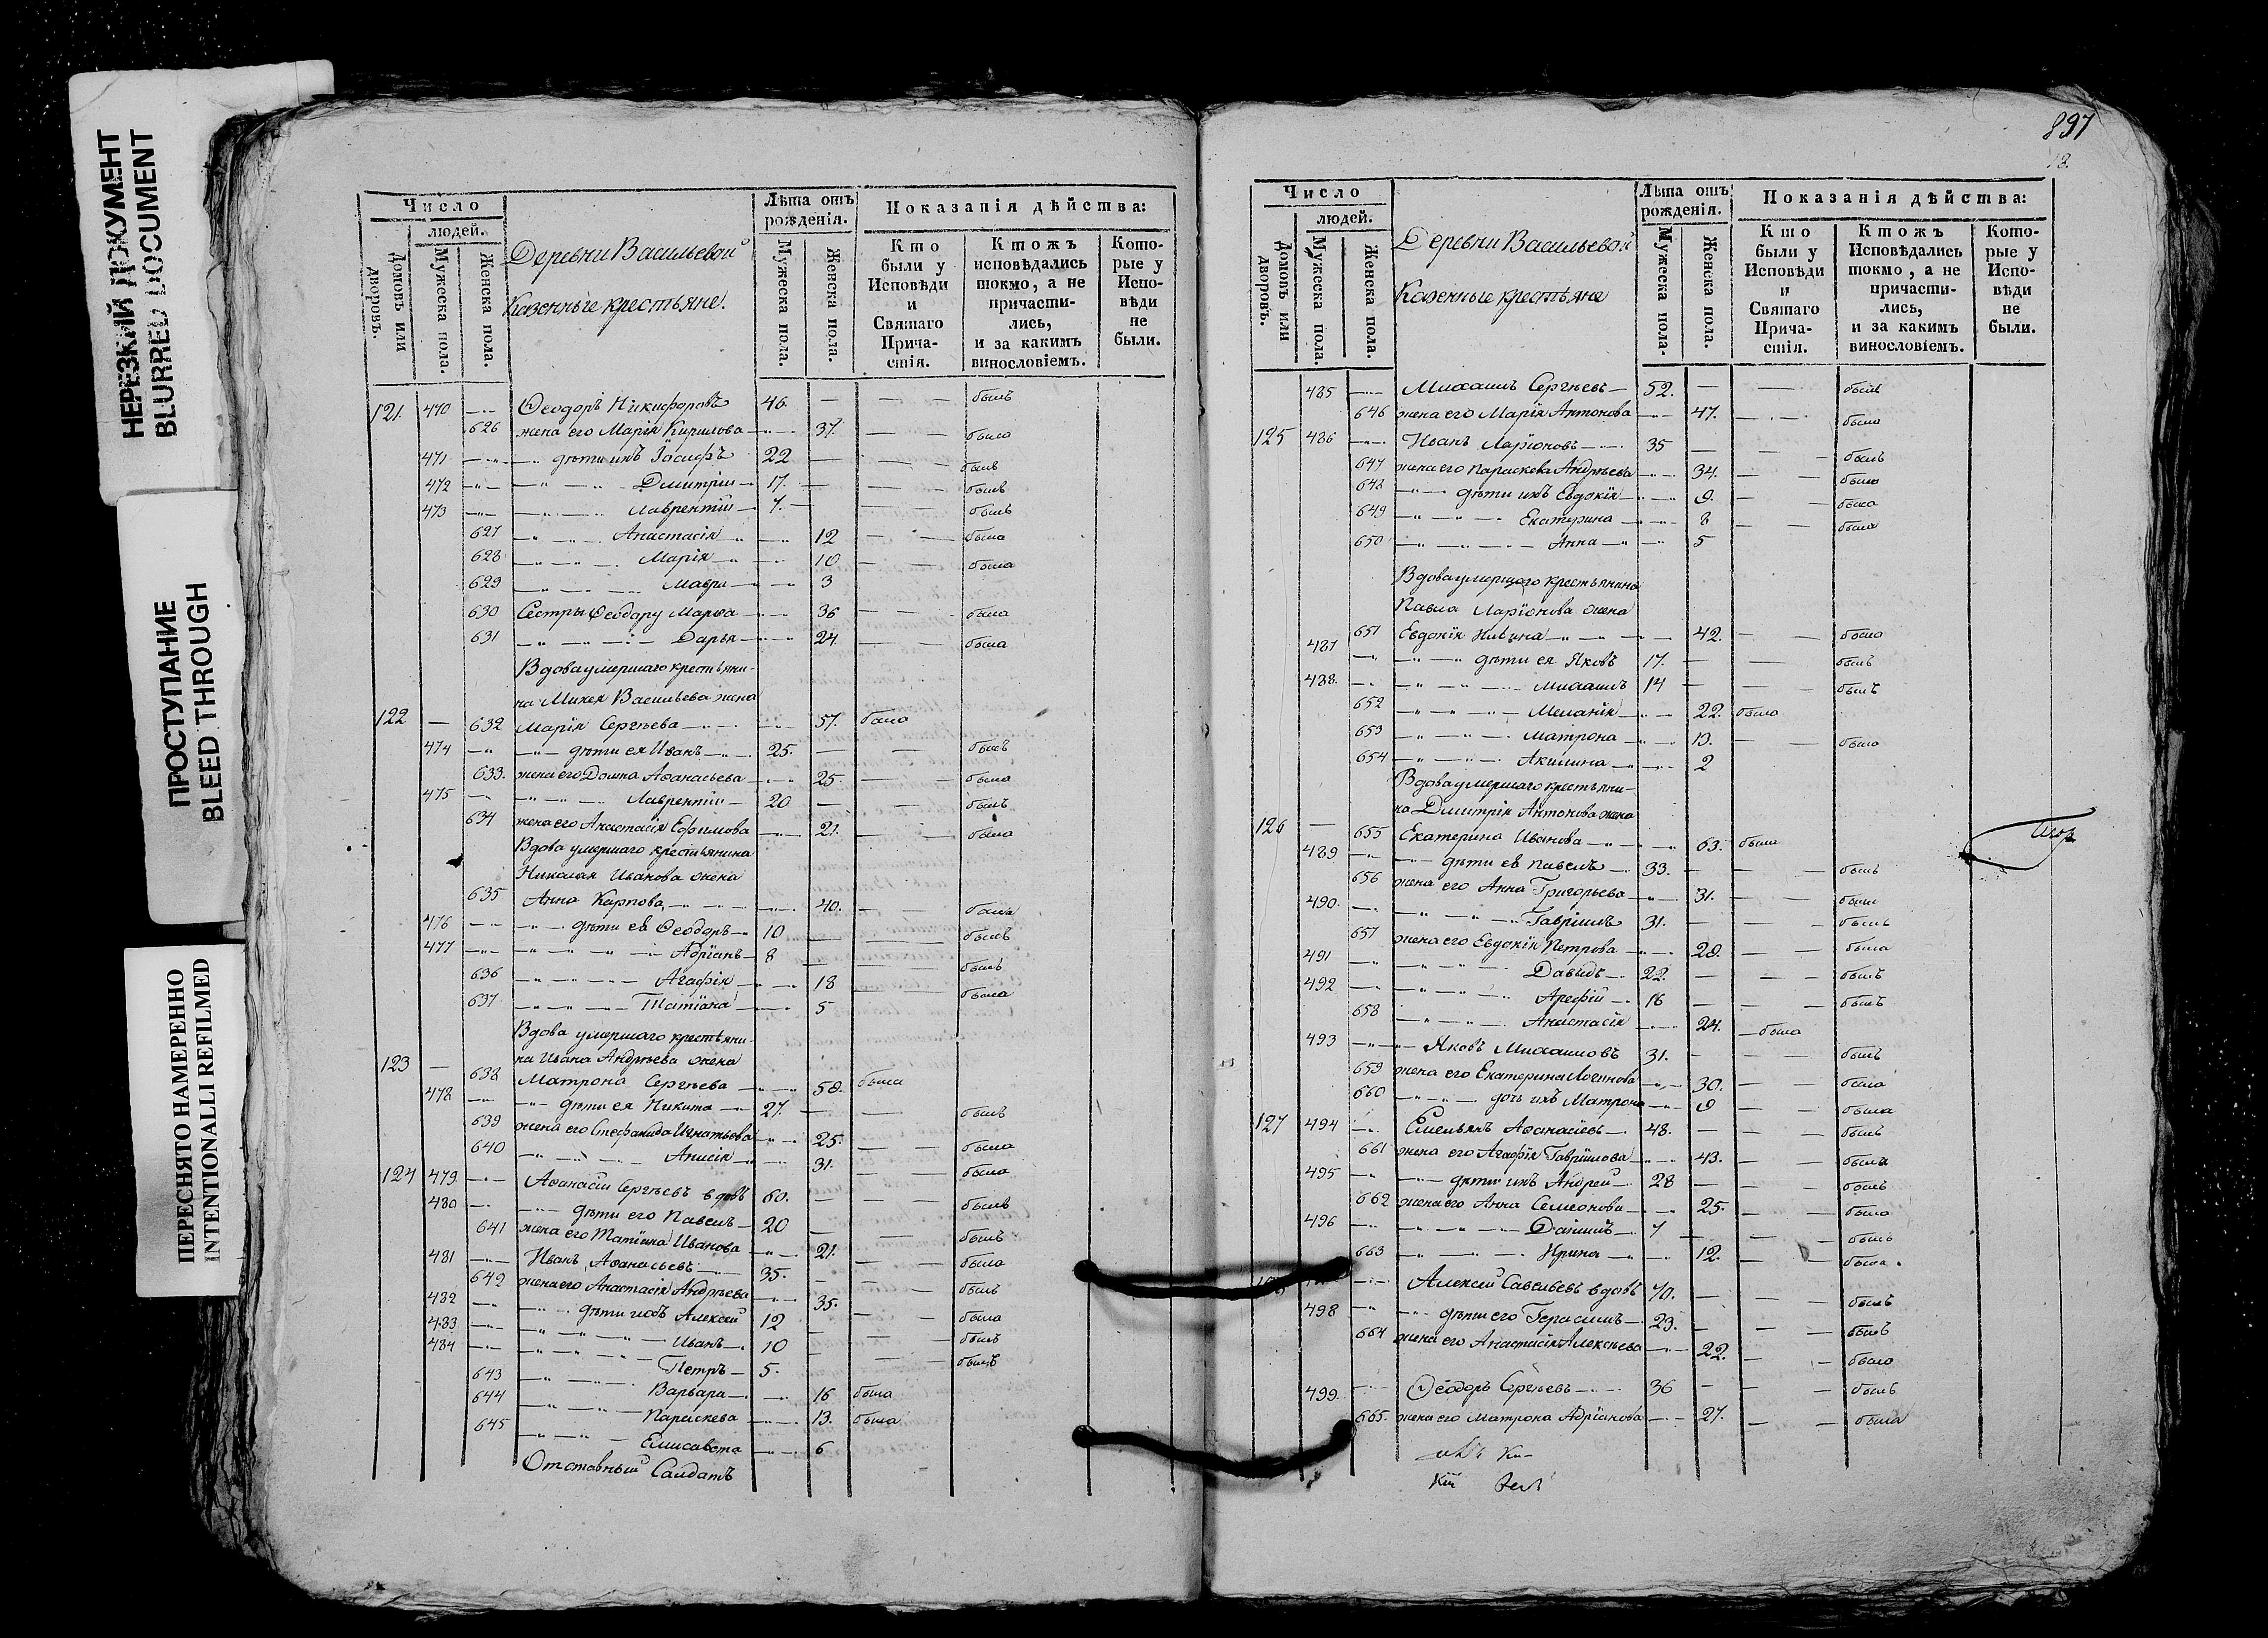 НЕРЕЗКИЙ ДОКУМЕНТ
BLURRED DOCUMENT
ПРОСТУПАНИЕ
BLEED THROUGH
ПЕРЕСНЯТО НАМЕРЕННО
INTENTIONALLI REFILMED
Число
людей.
Домовъ или дворовъ.
Мужеска пола.
Женска пола.
Деревни Васильевой
Казенные крестьяне.
Лѣта отъ рожденія.
Мужеска пола.
Женска пола.
Показанія дѣйства:
Кто были у Исповѣди и Святаго Прича-стія.
Ктожъ исповѣдались токмо, а не причасти-лись, и за какимъ винословіемъ.
Кото-рые у Испо-вѣди не были.
121. 470 Ѳеодоръ Никифоровъ 46. былъ
626 жена его Марія Кирилова 37. была
471 дѣти ихъ Іосифъ 22 былъ
472 Дмитрій 17. былъ
473 Лаврентій 7. былъ
627 Анастасія 12 была
628 Марія 10 была
629 Мавра 3
630 Сестры Ѳеодору Марѳа 36 была
631 Дарья 24. была
Вдова умершаго крестьяни-
на Михея Васильева жена
122 632 Марія Сергѣева 57. была
474 дѣти ея Иванъ 25. былъ
633. жена его Домна Аѳанасьева 25. была
475 Лаврентій 20 былъ
634 жена его Анастасія Ефимова 21. была
Вдова умершаго крестьянина
Николая Иванова жена
635 Анна Карпова 40. была
476 дѣти ея Ѳеодоръ 10 былъ
477 Адріанъ 8 былъ
636 Агафія 18 была
637 Татіана 5
Вдова умершаго крестьяни-
на Ивана Андрѣева жена
123 638 Матрона Сергѣева 58. была
478 дѣти ея Никита 27. былъ
639 жена его Стефанида Игнатьева 25. была
640 Анисія 31. была
124 479 Аѳанасій Сергѣевъ вдовъ 60. былъ
480 дѣти его Павелъ 20 былъ
641 жена его Татіана Иванова 21. была
481 Иванъ Аѳанасьевъ 35. былъ
642 жена его Анастасія Андрѣева 35. была
482 дѣти ихъ Алексій 12 былъ
483 Иванъ 10 былъ
484 Петръ 5.
643 Варвара 16 была
644 Параскева 13. была
645 Елисавета 6
Отставный Салдатъ
897
Число
людей.
Домовъ или дворовъ.
Мужеска пола.
Женска пола.
Деревни Васильевой
Казенные крестьяне
Лѣта отъ рожденія.
Мужеска пола.
Женска пола.
Показанія дѣйства:
Кто были у Исповѣди и Святаго Прича-стія.
Ктожъ Исповѣдались токмо, а не причасти-лись, и за какимъ винословіемъ.
Кото-рые у Испо-вѣди не были.
485 Михаилъ Сергѣевъ 52. былъ
646 жена его Марія Антонова 47. была
125 486 Иванъ Ларіоновъ 35 былъ
647 жена его Параскева Андрѣева 34. была
648 дѣти ихъ Евдокія 9. была
649 Екатерина 8 была
650 Анна 5
Вдова умершаго крестьянина
Павла Ларіонова жена
651 Евдокія Ильина 42. была
487 дѣти ея Яковъ 17. былъ
488. Михаилъ 14 былъ
652 Меланія 22. была
653 Матрона 13. была
654 Акилина 2
Вдова умершаго крестьяни-
на Дмитрія Антонова жена
126 655 Екатерина Иванова 63. была
489 дѣти ея Павелъ 33. былъ
656 жена его Анна Григорьева 31. была
490. Гавріилъ 31. былъ
657 жена его Евдокія Петрова 28. была
491 Давыдъ 22. былъ
492 Арефій 16 былъ
658 Анастасія 24. была
493 Яковъ Михаиловъ 31. былъ
659 жена его Екатерина Логинова 30. была
660 дочь ихъ Матрона 9 была
127 494 Емельянъ Аѳанасіевъ 48. былъ
661 жена его Агафія Гавриилова 43. была
495 дѣти ихъ Андрей 28 былъ
662 жена его Анна Семеонова 25. была
496 Даніилъ 7 былъ
663 Ирина 12. была
Алексій Савельевъ вдовъ 70. былъ
498 дѣти его Герасимъ 23. былъ
664 жена его Анастасія Алексѣева 22. была
499. Ѳеодоръ Сергѣевъ 36 былъ
665. жена его Матрона Адріанова 27. была